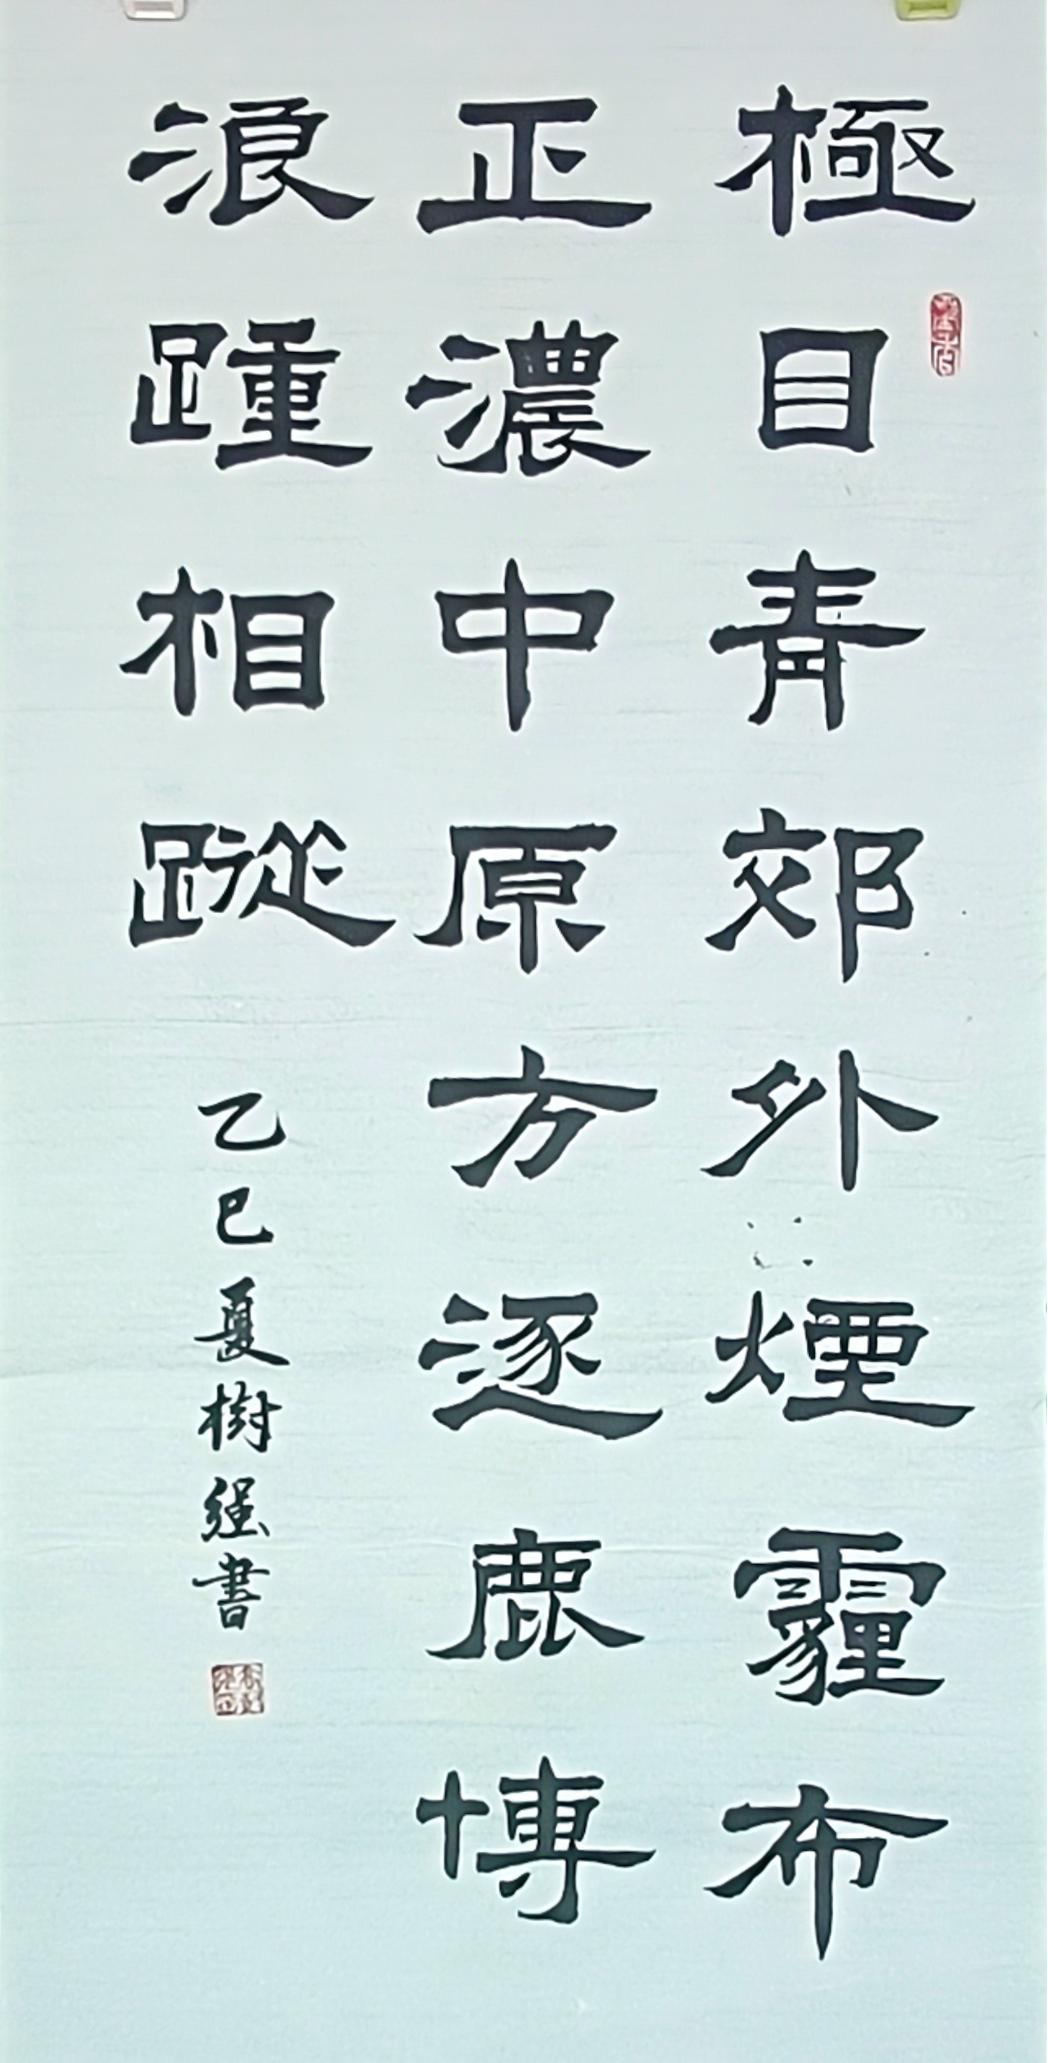 極目青郊外煙霾布
正濃中原方逐鹿博
浪踵相蹤
乙巳夏樹強書